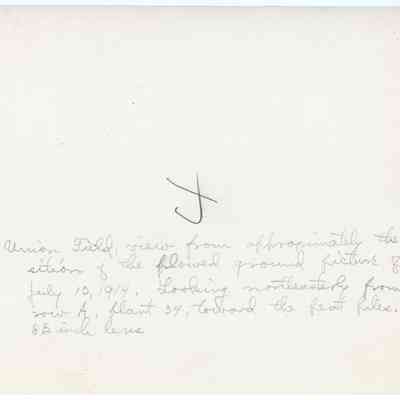 Union Field, view from approximately the
sition of the plowed ground picture of
July 10, 1914. Looking northeasterly from
row A, plant 34, toward the peat piles.
inch lens